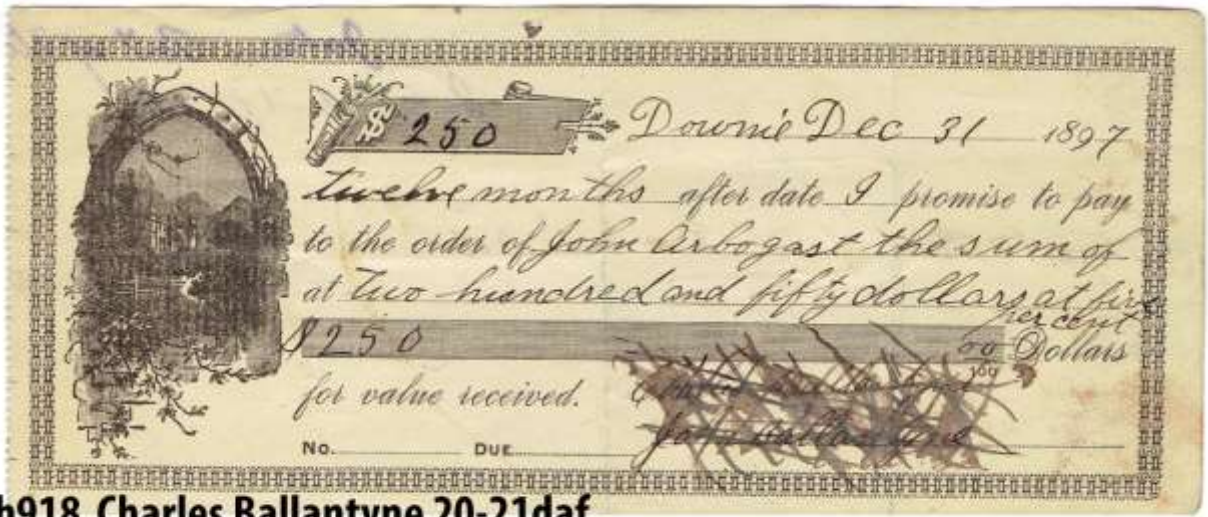 $ 250 Downie Dec 31 1897
twelve months after date I promise to pay
to the order of John Arbogast the sum of
at two hundred and fifty dollars at five
per cent
$250 00/100 Dollars
for value received.
John Ballantyne
No. DUE
h918 Charles Ballantyne 20-21daf